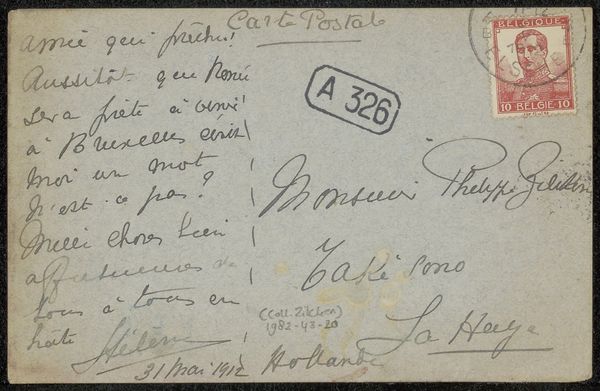 Carte Postale
Aussitôt que Renée
sera prête à venir
à Bruxelles écris
moi un mot
N'est-ce pas?
Mille choses bien
affectueuses de
tous à tous en
hâte
Hélène
31 Mai 1912
A 326
BELGIQUE
10 BELGIE 10
Monsieur Philippe Zilcken
Taki sono
La Haye
Hollande
(Coll. Zilcken)
1982-43-20